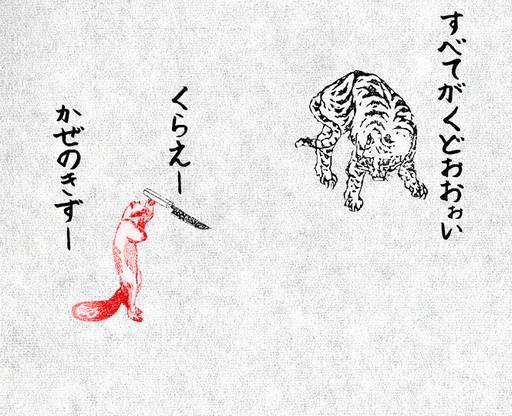 すべてがくどおおぉい
くらえー
かぜのきずー